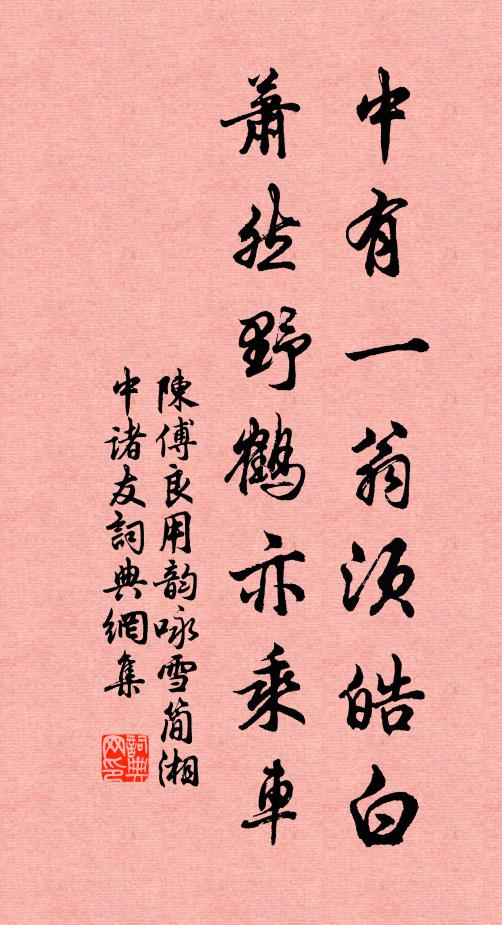 中有一翁須皓白
蕭然野鶴亦乘車
陳傅良用韵咏雪简湘
中诸友詞典網集
詞典网印